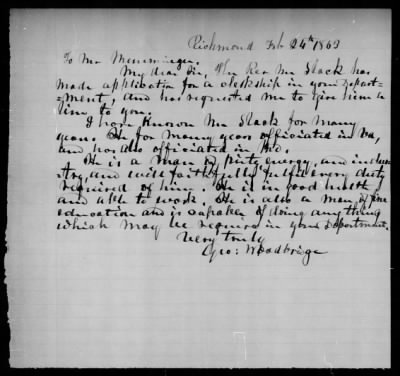 Richmond Feb 24th 1863
To Mr Memminger.
My dear Sir, The Rev Mr Slack has
made application for a clerkship in your Depart-
-ment, and has requested me to give him a
line to you.
I have known Mr Slack for many
years. He for many years officiated in Va,
and has also officiated in
He is a man of piety, energy, and indus
try, and will faithfully fulfil every duty
required of him. He is in good health
and able to work. He is also a man of fine
education and is capable of doing any thing
which may be require in your Department.
Very truly
Geo: Woodbridge